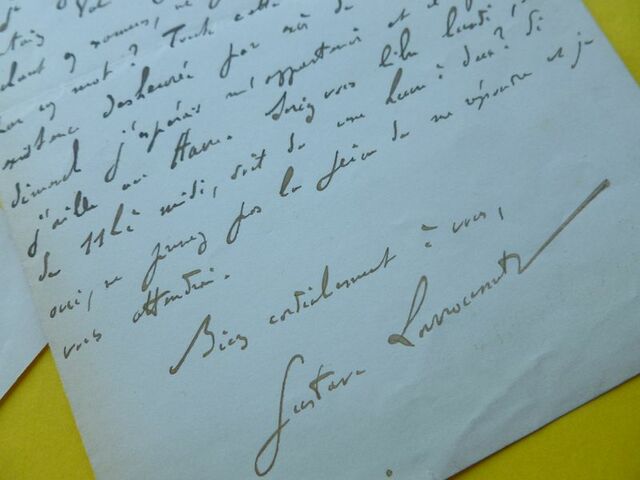 mot? Toute cette
existence désheurée par
dimanche j'espérais m'appartenir et il
j'aille au Havre. Serez-vous libre lundi,
de 11h à midi, soit de une heure à deux? Si
oui, ne prenez pas la peine de me répondre et je
vous attendrai.
Bien cordialement à vous,
Gustave Larroumet